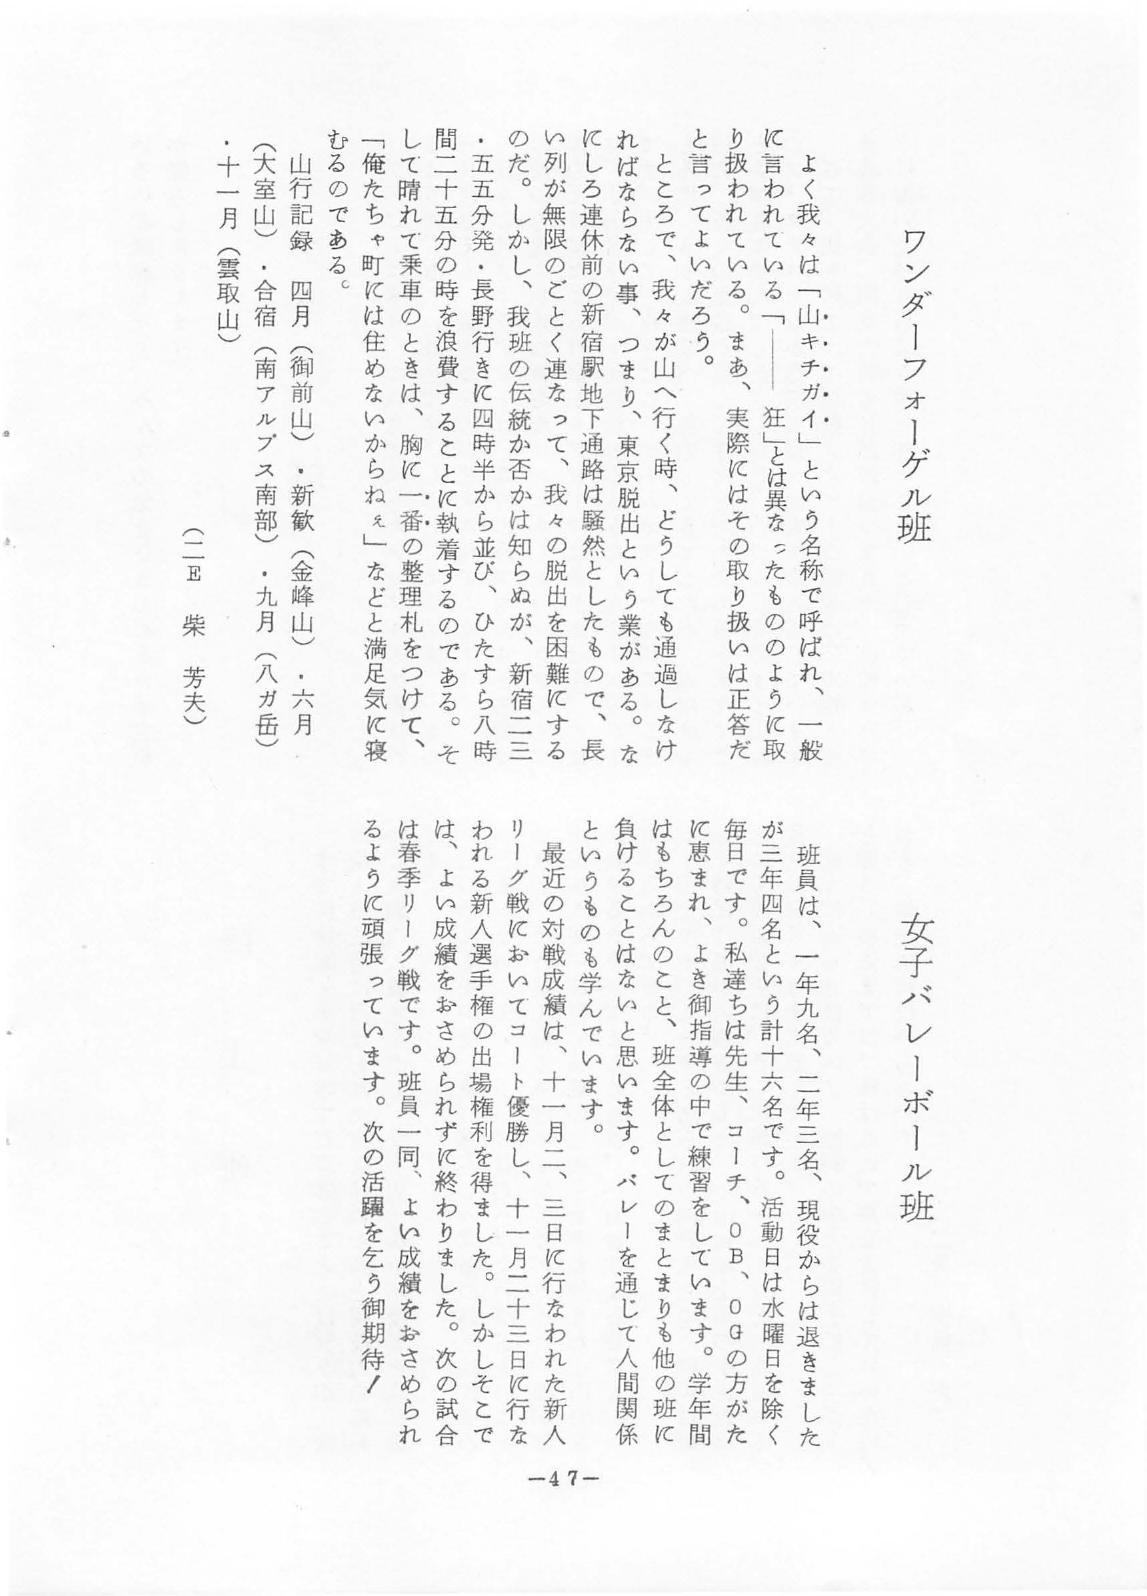 ワンダーフォーゲル班
よく我々は「山キチガイ」という名称で呼ばれ、一般
に言われている「――狂」とは異なったもののように取
り扱われている。まあ、実際にはその取り扱いは正答だ
と言ってよいだろう。
ところで、我々が山へ行く時、どうしても通過しなけ
ればならない事、つまり、東京脱出という業がある。な
にしろ連休前の新宿駅地下通路は騒然としたもので、長
い列が無限のごとく連なって、我々の脱出を困難にする
のだ。しかし、我班の伝統か否かは知らぬが、新宿二三
・五五分発・長野行きに四時半から並び、ひたすら八時
間二十五分の時を浪費することに執着するのである。そ
して晴れて乗車のときは、胸に一番の整理札をつけて、
「俺たちゃ町には住めないからねぇ」などと満足気に寝
むるのである。
山行記録　四月（御前山）・新歓（金峰山）・六月
（大室山）・合宿（南アルプス南部）・九月（八ガ岳）
・十一月（雲取山）
（二E　柴　芳夫）
女子バレーボール班
班員は、一年九名、二年三名、現役からは退きました
が三年四名という計十六名です。活動日は水曜日を除く
毎日です。私達ちは先生、コーチ、OB、OGの方がた
に恵まれ、よき御指導の中で練習をしています。学年間
はもちろんのこと、班全体としてのまとまりも他の班に
負けることはないと思います。バレーを通じて人間関係
というものも学んでいます。
最近の対戦成績は、十一月二、三日に行なわれた新人
リーグ戦においてコート優勝し、十一月二十三日に行な
われる新人選手権の出場権利を得ました。しかしそこで
は、よい成績をおさめられずに終わりました。次の試合
は春季リーグ戦です。班員一同、よい成績をおさめられ
るように頑張っています。次の活躍を乞う御期待！
—47—